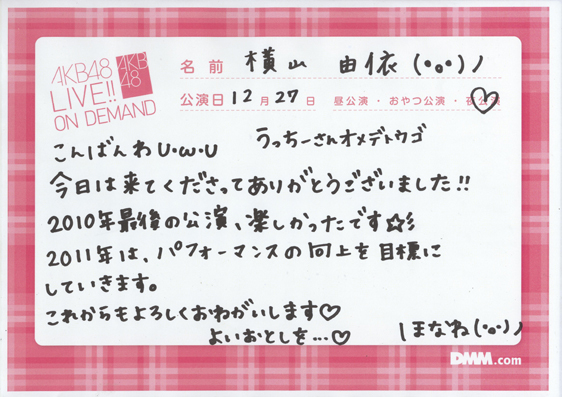 AKB48
LIVE!!
ON DEMAND
AKB
48
名前 横山 由依 (•o•)ノ
公演日 12月27日 昼公演・おやつ公演・夜公演
こんばんわU・ω・U うっちーさんオメデトウゴ
今日は来てくださってありがとうございました!!
2010年最後の公演、楽しかったです☆彡
2011年は、パフォーマンスの向上を目標に
していきます。
これからもよろしくおねがいします♡
よいおとしを…♡ ほなね(•o•)ノ
DMM.com